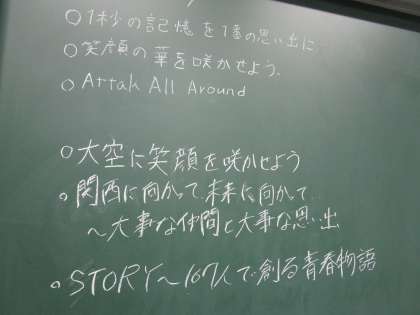 ○1秒の記憶を1番の思い出に
○笑顔の華を咲かせよう.
○Attak All Around
○大空に笑顔を咲かせよう
○関西に向かって未来に向かって
～大事な仲間と大事な思い出
○STORY～167人で創る青春物語